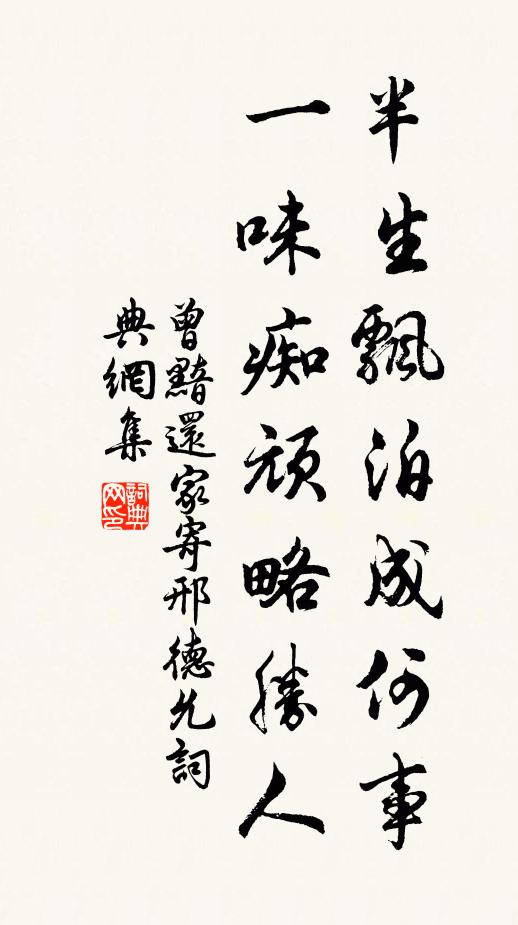 半生飄泊成何事
一味痴頑略勝人
曾黯還家寄邢德允詞
典網集
詞典網印